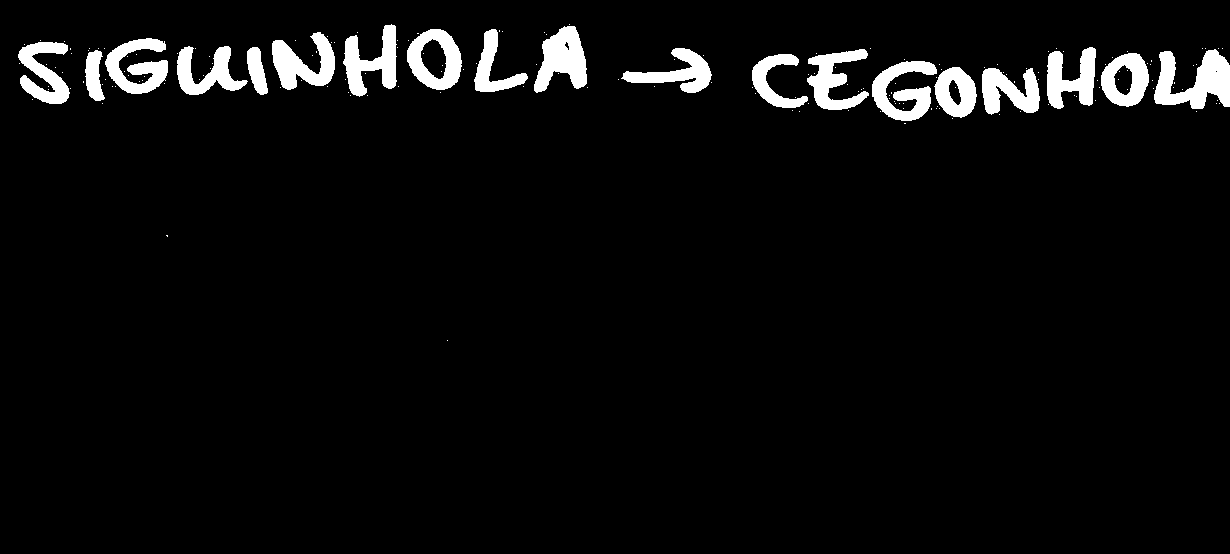 SIGUINHOLA → CEGONHOLA